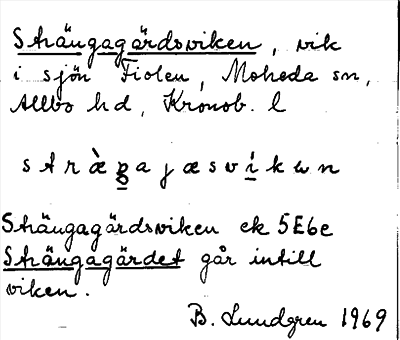 Strängagärdsviken, vik
i sjön Fiolen, Moheda sn,
Allbo hd, Kronob. l
stræ̀ŋajæsvíken
Strängagärdsviken ek 5E6e
Strängagärdet går intill
viken.
B. Lundgren 1969